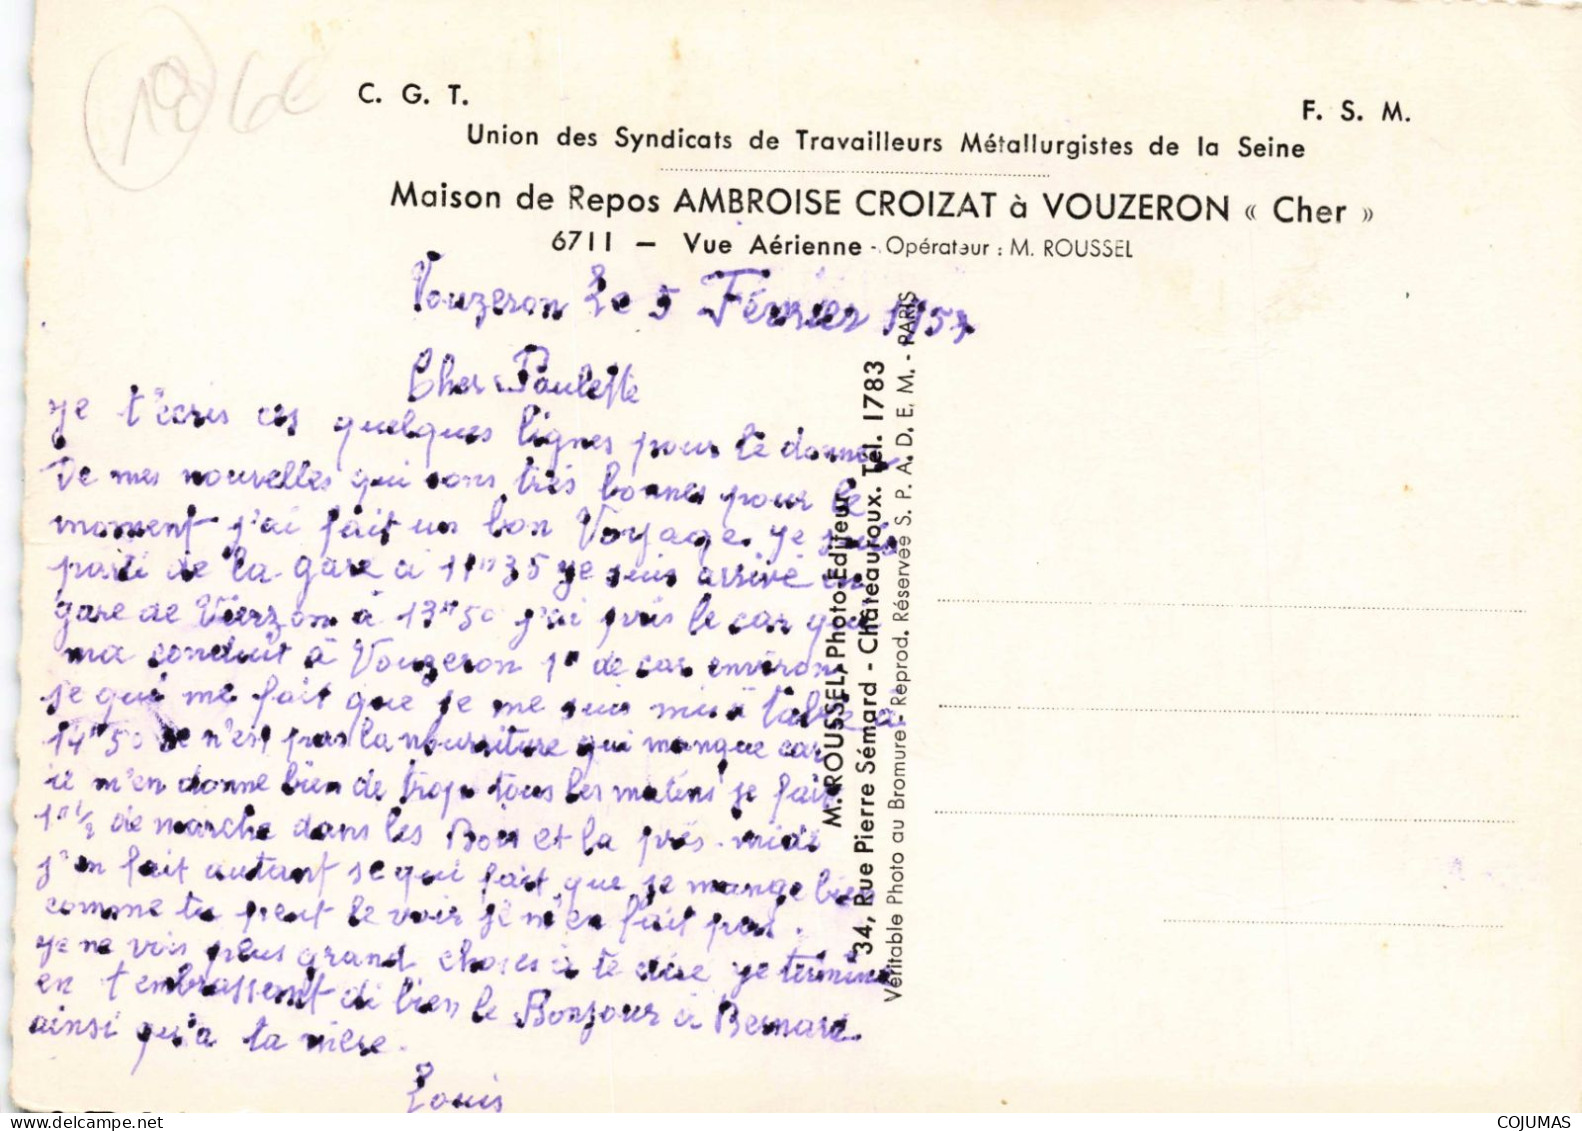 18 6€
C. G. T.
F. S. M.
Union des Syndicats de Travailleurs Métallurgistes de la Seine
Maison de Repos AMBROISE CROIZAT à VOUZERON « Cher »
6711 — Vue Aérienne - Opérateur : M. ROUSSEL
Vouzeron le 5 Février 1957
Cher Paulette
je t'écris ces quelques lignes pour te donner
De mes nouvelles qui sons très bonnes pour le
moment j'ai fait un bon Voyage je suis
parti de la gare à 11h35 je suis arrivé en
gare de Vierzon à 13h50 j'ai pris le car qui
ma conduit à Vouzeron 1h de car environ
se qui me fait que je me suis mis à table à
14h50 se n'est pas la nourriture qui manque car
il m'en donne bien de trop tous les matins je fait
1h1/2 de marche dans les Bois et la près-midi
j'en fait autant se qui fait que je mange bien
comme tu peut le voir je m'en fait pas.
je ne vois plus grand choses à te dire je termine
en t'embrassent di bien le Bonjour à Bernard
ainsi qu'a ta mère.
Louis
M. ROUSSEL, Photo-Editeur
34, Rue Pierre Sémard - Châteauroux. Tél. 1783
Véritable Photo au Bromure - Reprod. Réservée S. P. A. D. E. M. - PARIS
COJUMAS